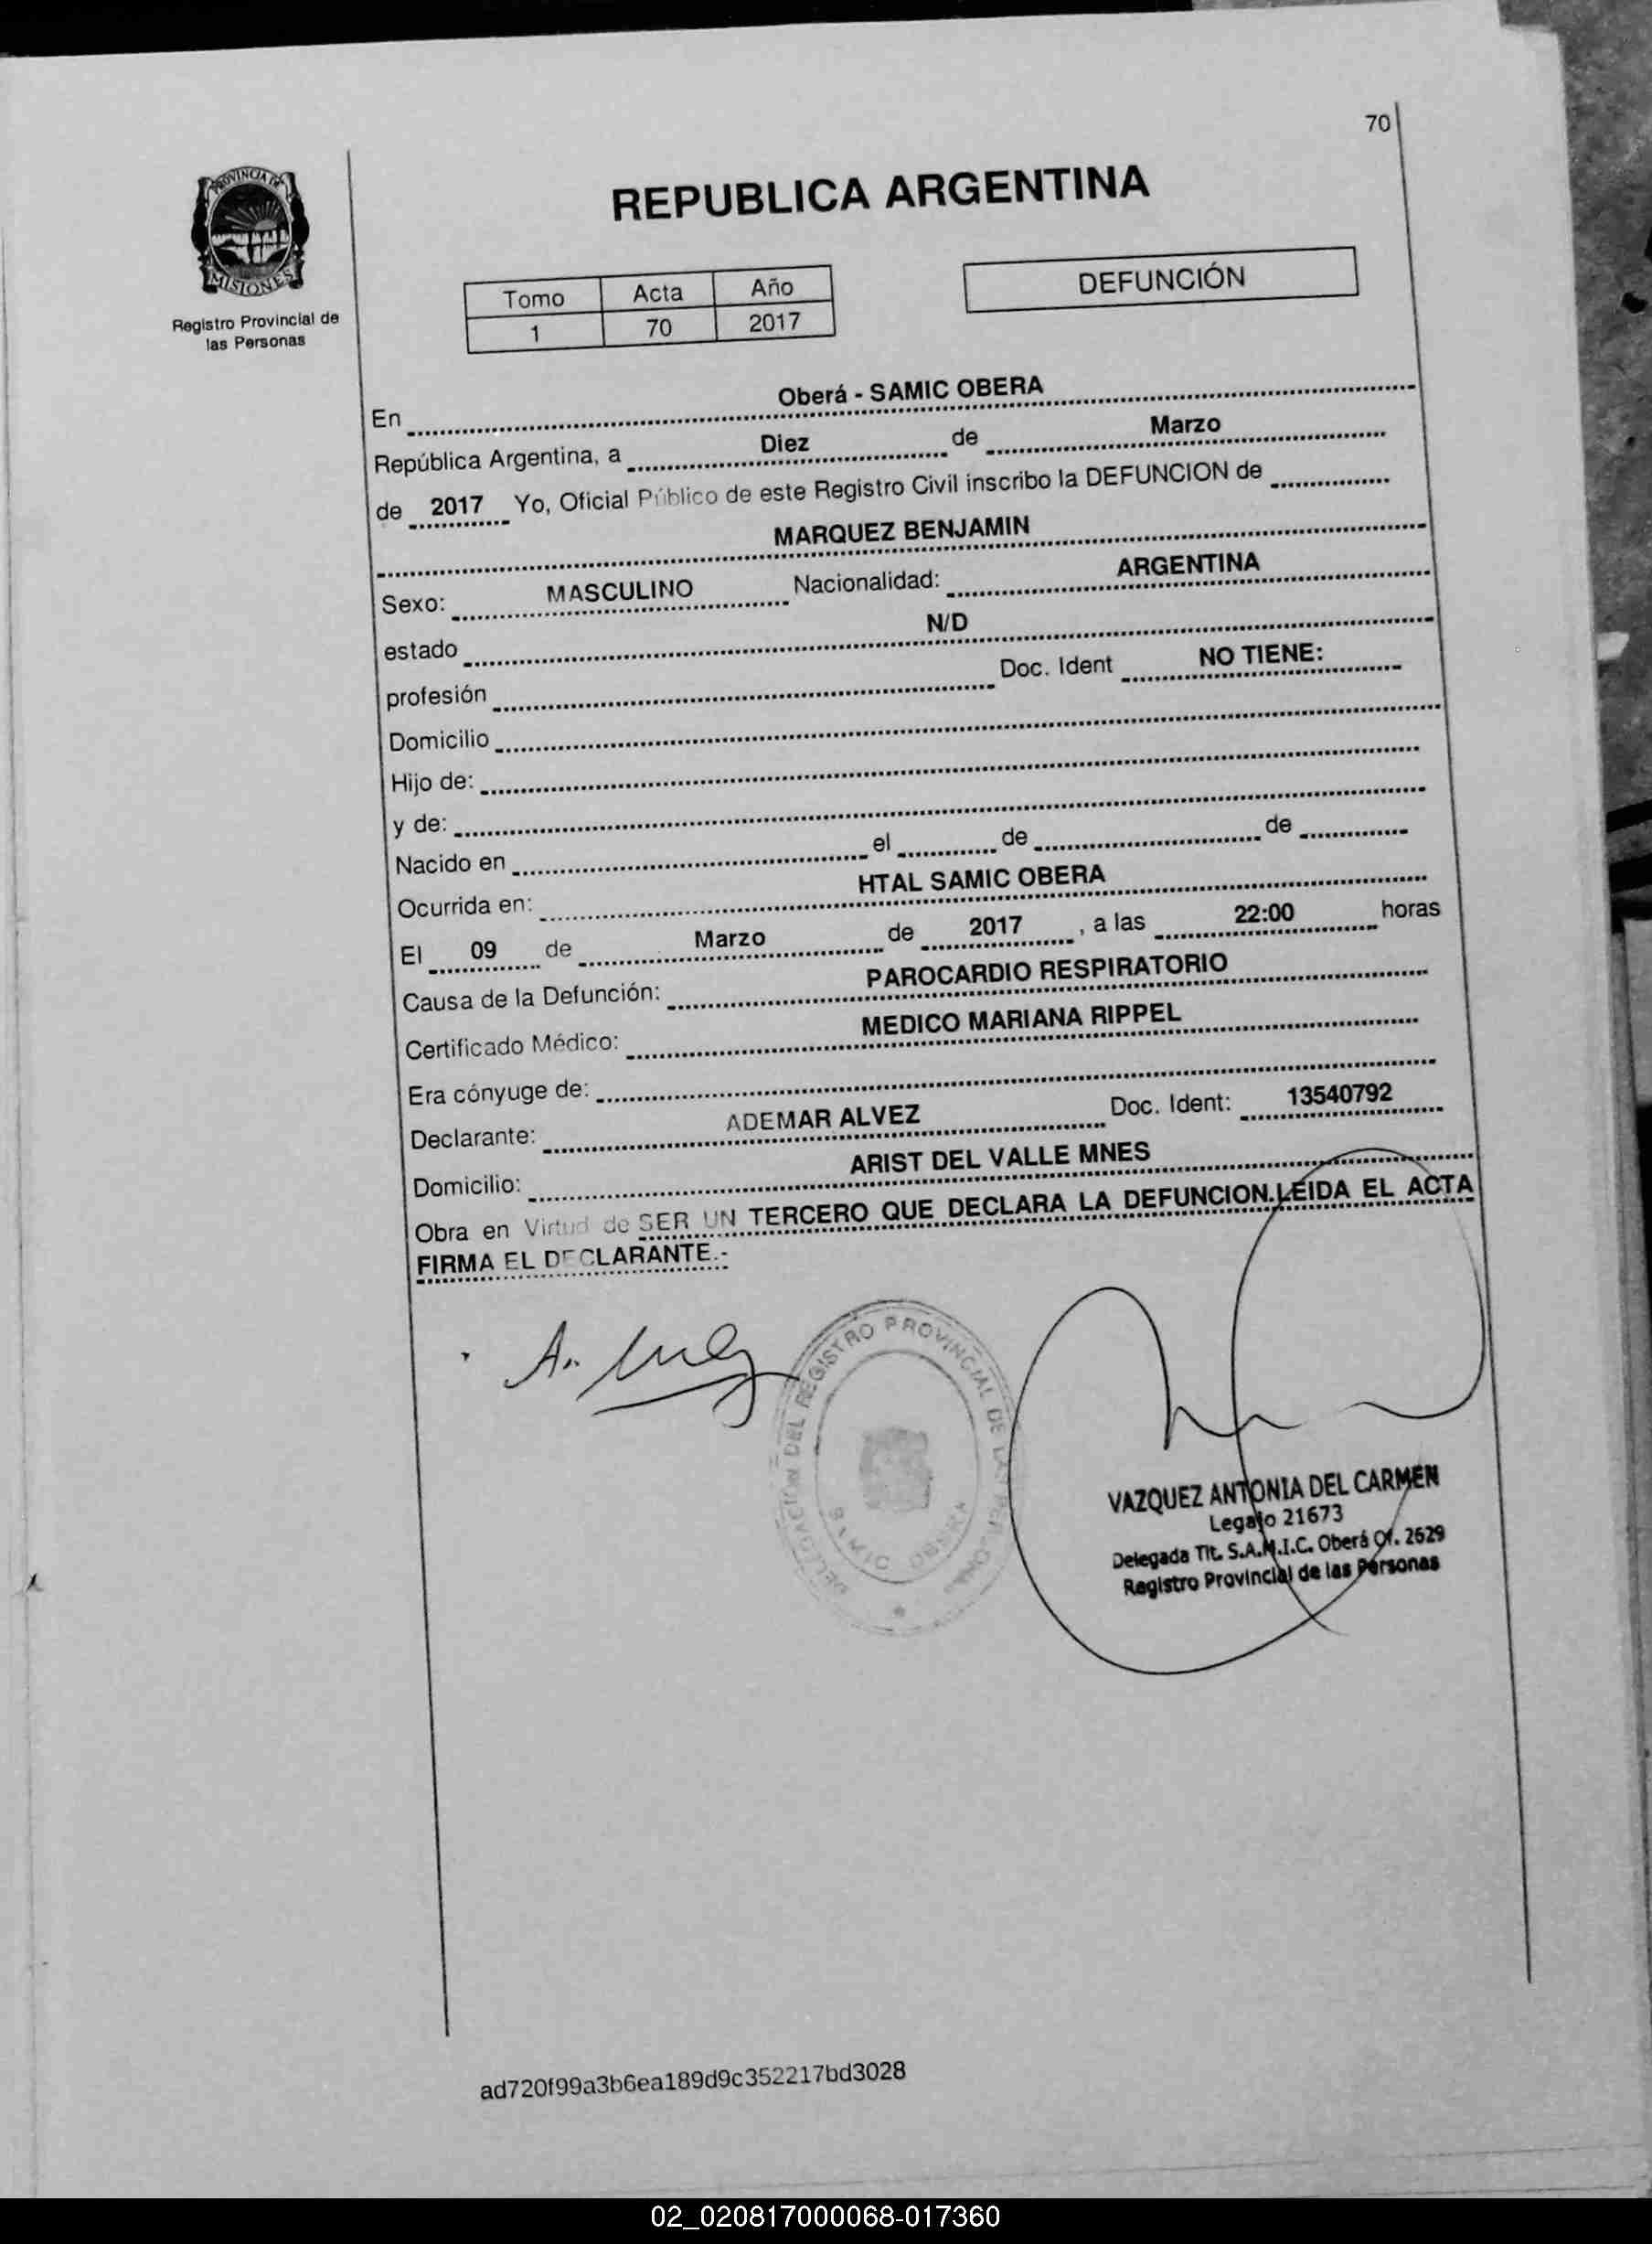 70
PROVINCIA DE
MISIONES
Registro Provincial de
las Personas
REPUBLICA ARGENTINA
Tomo Acta Año
1 70 2017
DEFUNCIÓN
En Oberá - SAMIC OBERA
República Argentina, a Diez de Marzo
de 2017 Yo, Oficial Público de este Registro Civil inscribo la DEFUNCION de
MARQUEZ BENJAMIN
Sexo: MASCULINO Nacionalidad: ARGENTINA
estado N/D
profesión Doc. Ident NO TIENE:
Domicilio
Hijo de:
y de:
Nacido en el de de
Ocurrida en: HTAL SAMIC OBERA
El 09 de Marzo de 2017 , a las 22:00 horas
Causa de la Defunción: PAROCARDIO RESPIRATORIO
Certificado Médico: MEDICO MARIANA RIPPEL
Era cónyuge de:
Declarante: ADEMAR ALVEZ Doc. Ident: 13540792
Domicilio: ARIST DEL VALLE MNES
Obra en Virtud de SER UN TERCERO QUE DECLARA LA DEFUNCION.LEIDA EL ACTA
FIRMA EL DECLARANTE.-
DELEGACION DEL REGISTRO PROVINCIAL DE LAS PERSONAS
SAMIC OBERA
VAZQUEZ ANTONIA DEL CARMEN
Legajo 21673
Delegada Tit. S.A.M.I.C. Oberá Of. 2629
Registro Provincial de las Personas
ad720f99a3b6ea189d9c352217bd3028
02_020817000068-017360